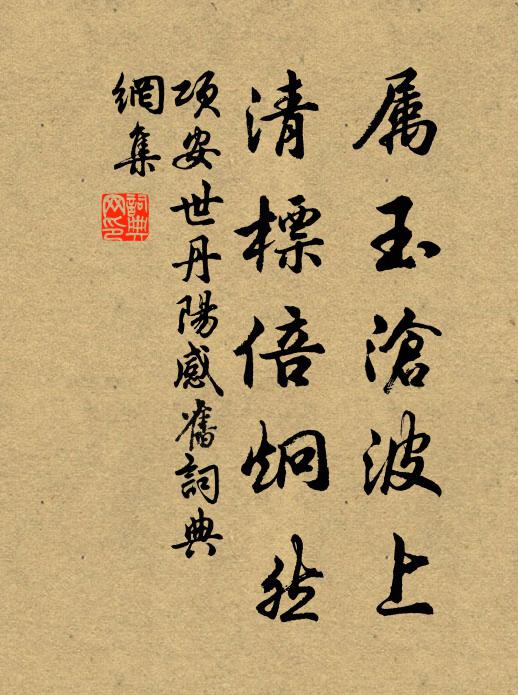 属玉滄波上
清標倍炯然
項安世丹陽感舊詞典
網集
詞典網印